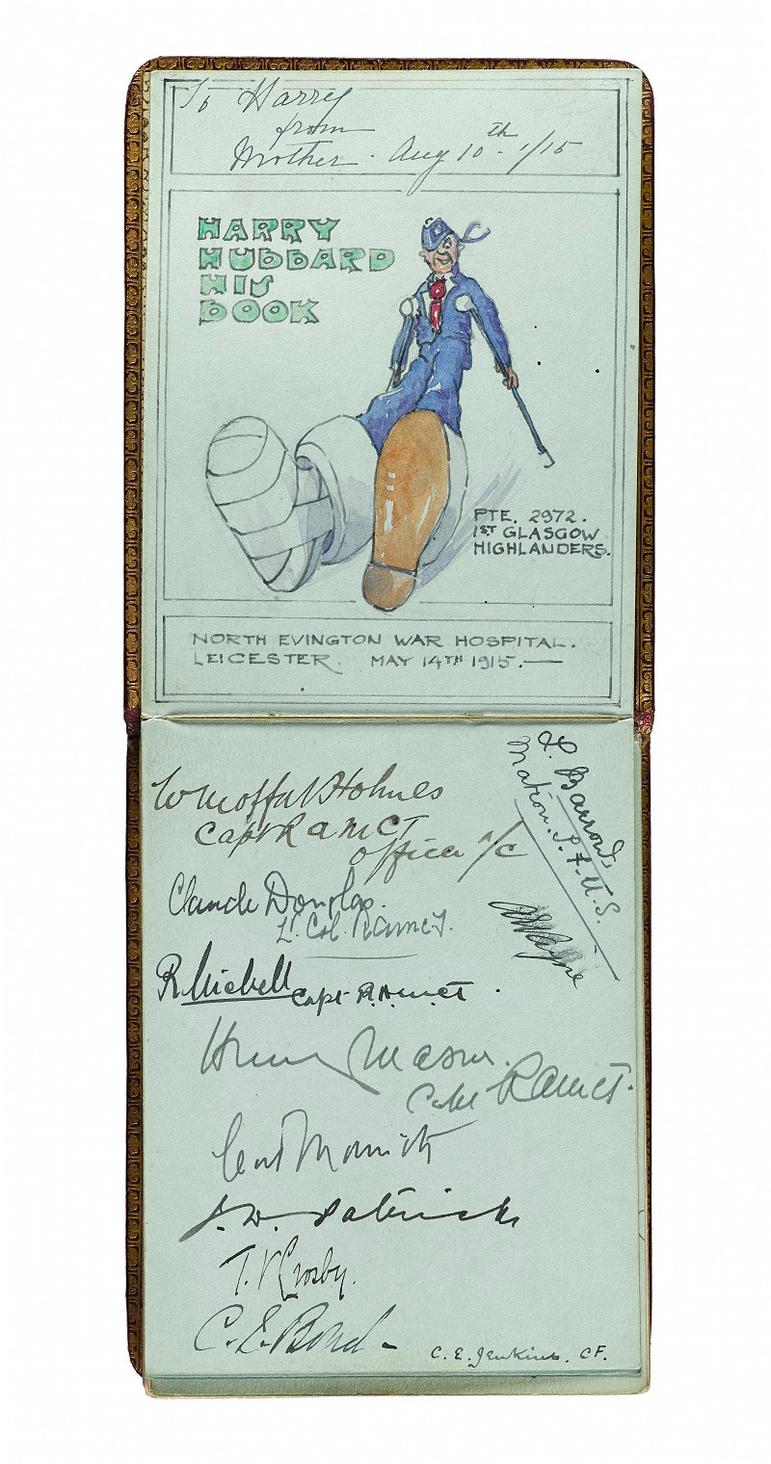 To Harry
from
Mother. Aug 10th. 1/15
HARRY
HUBBARD
HIS
BOOK
PTE. 2972.
1ST GLASGOW
HIGHLANDERS.
NORTH EVINGTON WAR HOSPITAL.
LEICESTER. MAY 14TH 1915.—
W Moffat Holmes
Capt R A M C T
officer i/c
Barrow,
Matron.
Claude Douglas.
Lt. Col. R A M C T.
R Michell Capt. R.A.M.C.T.
Mason.
R A M C T.
Patrick
T. V Crosby.
C. E. Bond -
C. E. Jenkins. CF.